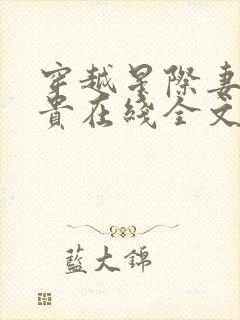 穿越星际妻
貴在綫全文
藍大錦